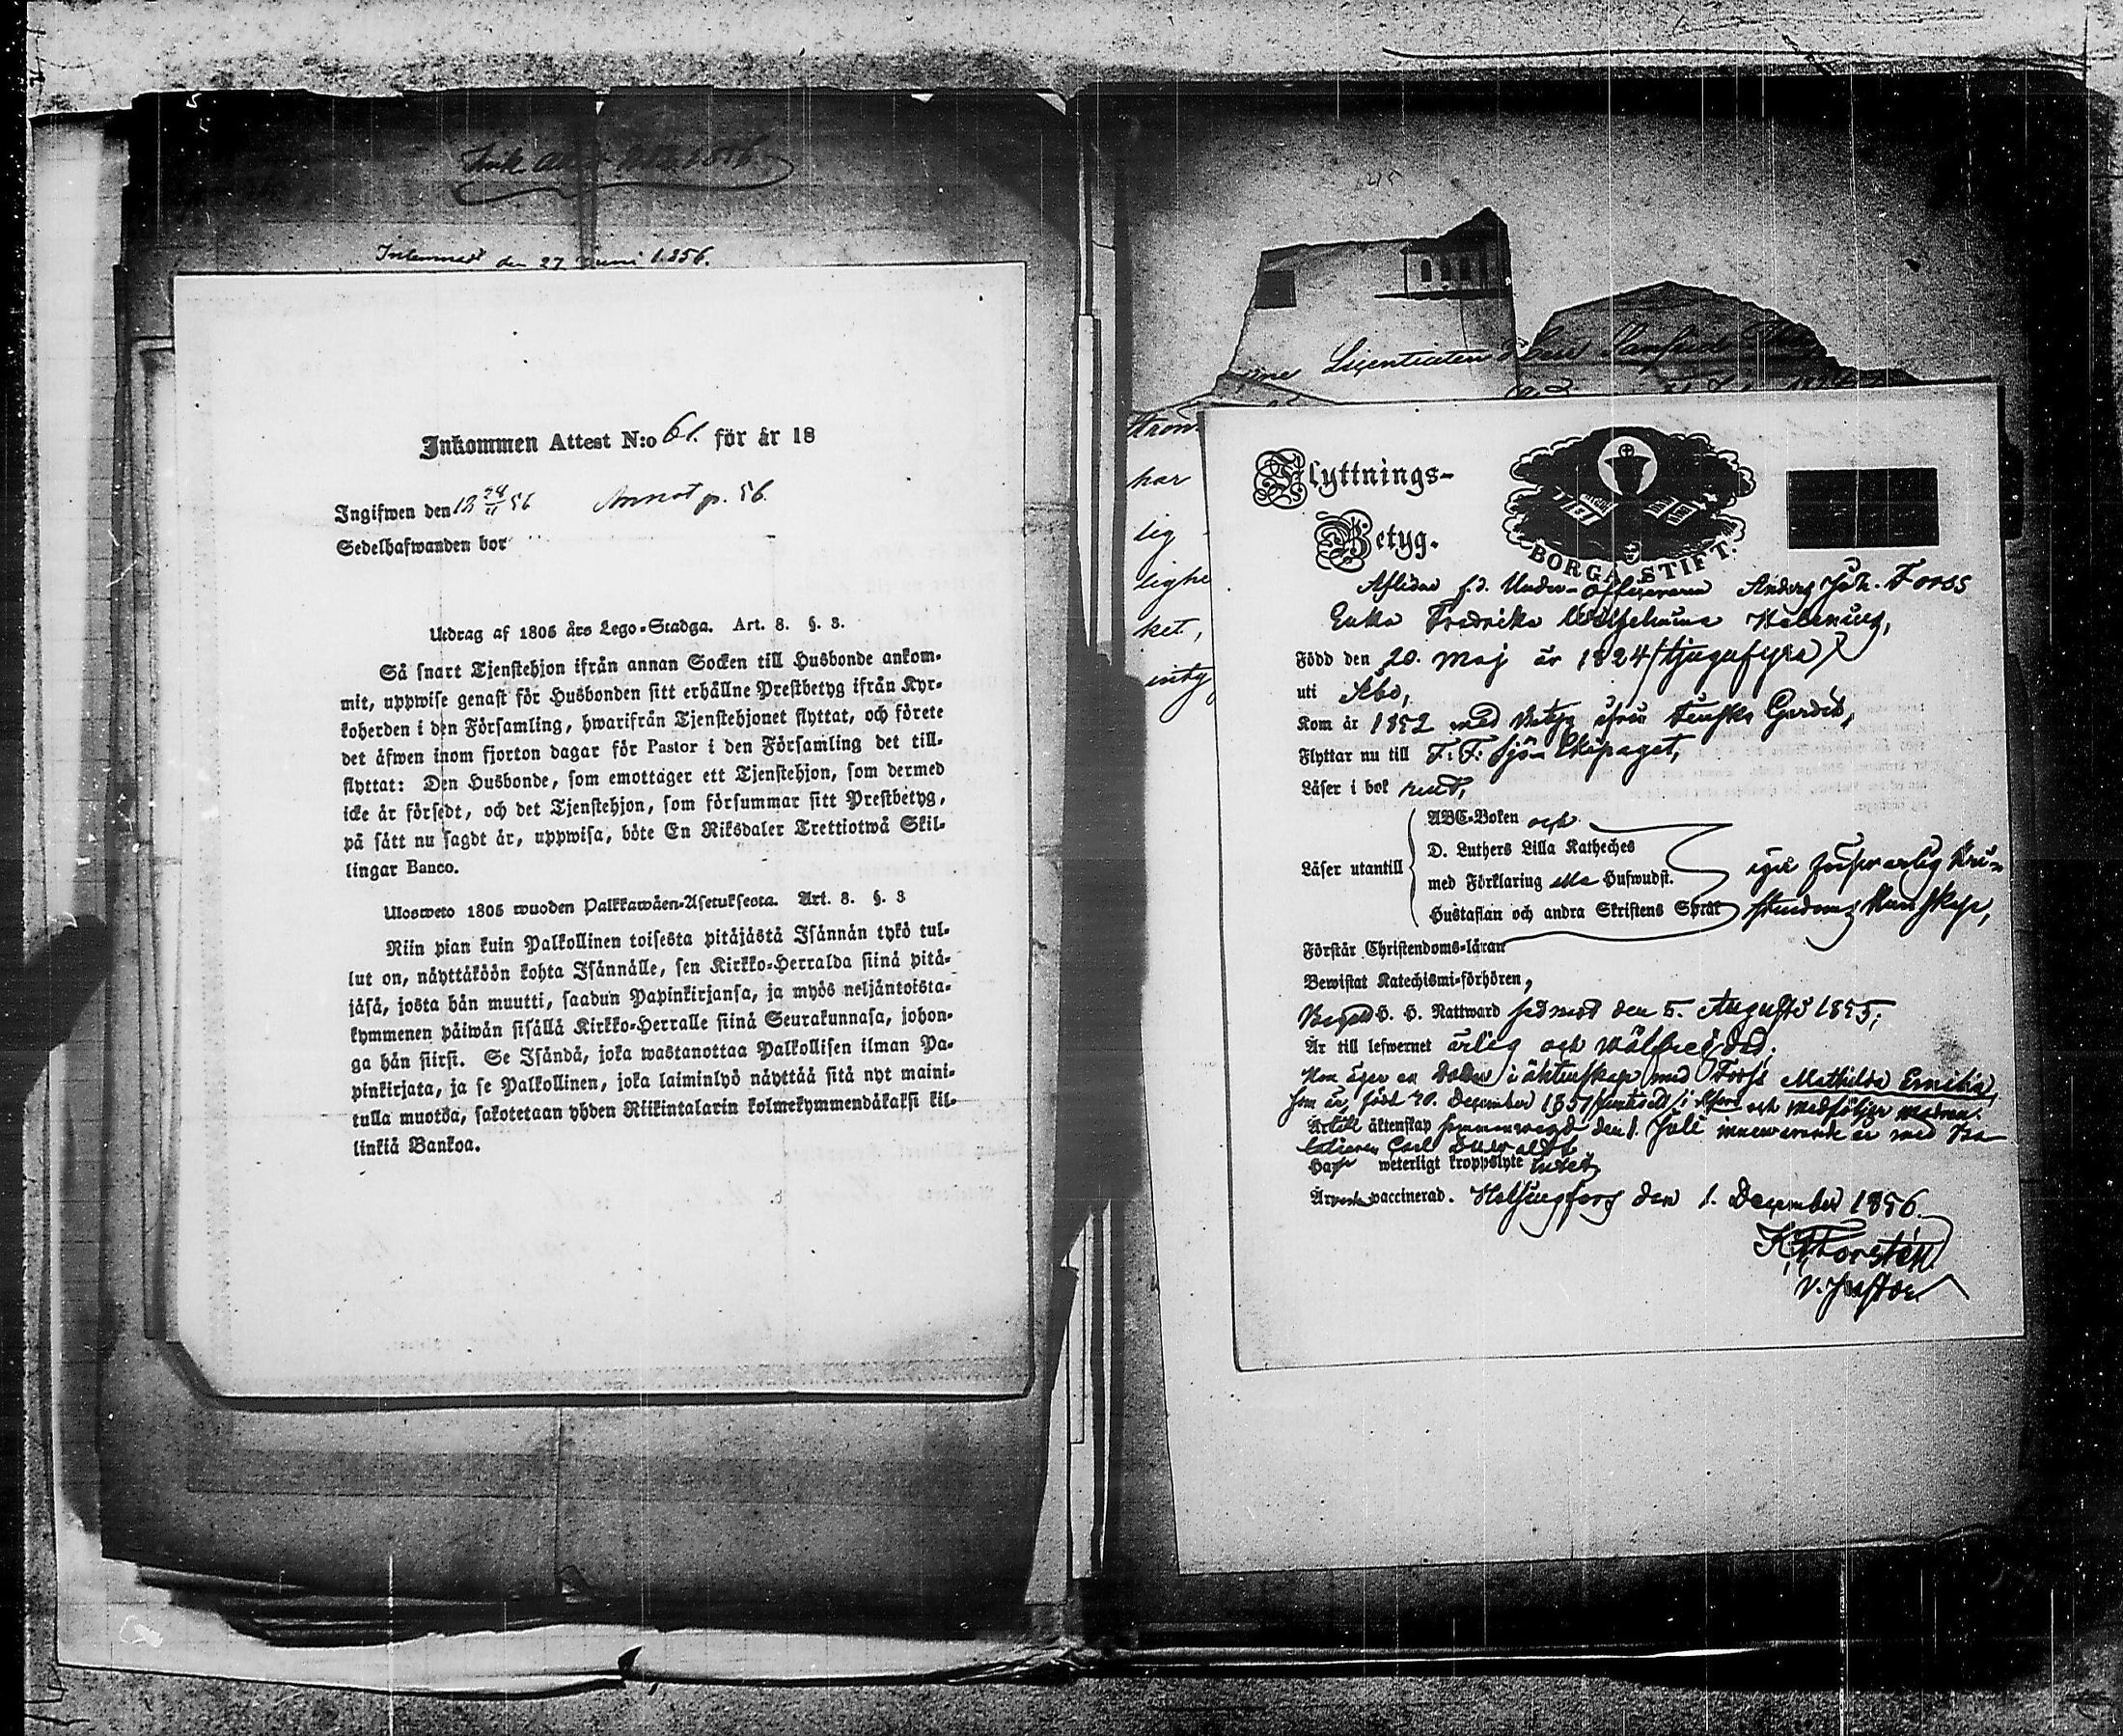 Inlemnad den 27 Juni 1856.
Inkommen Attest N:o 61. för år 18
Ingifwen den 12 24/11 56 Annot p. 56.
Sedelhafwanden bor
Utdrag af 1805 års Lego-Stadga. Art. 8. §. 3.
Så snart Tjenstehjon ifrån annan Socken till Husbonde ankom-
mit, uppwise genast för Husbonden sitt erhållne Prestbetyg ifrån Kyr-
koherden i den Församling, hwarifrån Tjenstehjonet flyttat, och förete
det äfwen inom fjorton dagar för Pastor i den Församling det till-
flyttat: Den Husbonde, som emottager ett Tjenstehjon, som dermed
icke är försedt, och det Tjenstehjon, som försummar sitt Prestbetyg,
på sätt nu sagdt är, uppwisa, böte En Riksdaler Trettiotwå Skil-
lingar Banco.
Ulosweto 1805 wuoden Palkkawäen-Asetuksesta. Art. 8. §. 3
Niin pian kuin Palkollinen toisesta pitäjästä Isännän tykö tul-
lut on, näyttäköön kohta Isännälle, sen Kirkko-Herralda siinä pitä-
jäsä, josta hän muutti, saadun Papinkirjansa, ja myös neljäntoista-
kymmenen päiwän sisällä Kirkko-Herralle siinä Seurakunnasa, johon-
ga hän siirsi. Se Isändä, joka wastanottaa Palkollisen ilman Pa-
pinkirjata, ja se Palkollinen, joka laiminlyö näyttää sitä nyt maini-
tulla muotoa, sakotetaan yhden Riikintalarin kolmekymmendäkaksi kil-
linkiä Bankoa.
Licentiaten
har
lig
lighe
ket,
intyg
Flyttnings-
Betyg.
BORGÅ STIFT.
Aflidne f.d. Under-officeraren Anders Joh. Forss
Enka Fredrika Wilhelmina
Född den 20. Maj år 1824 (tjugufyra)
uti Åbo,
Kom år 1852 med betyg ifrån Finska Gardet,
Flyttar nu till F. F. Sjö Ekipaget,
Läser i bok rent,
Läser utantill
ABC-Boken och
D. Luthers Lilla Katheches
med Förklaring Hufwudst.
Hustaflan och andra Skriftens Språk
eger försvarlig Kri-
stendoms Kunskap,
Förstår Christendoms-läran
Bewistat Katechismi-förhören,
Begått H. H. Nattward sednast den 5. Augusti 1855;
Är till lefwernet ärlig och wälfrejdad;
Hon äger en dotter i äktenskap med Forss Mathilda Emilia,
som är född 20. December 1851 och medföljer modren.
till äktenskap sammanvigd den 1. Juli innevarande år med
Carl
Har weterligt kroppslyte intet,
Är vaccinerad. Helsingfors den 1. December 1856.
K. Thorstén
V. Pastor